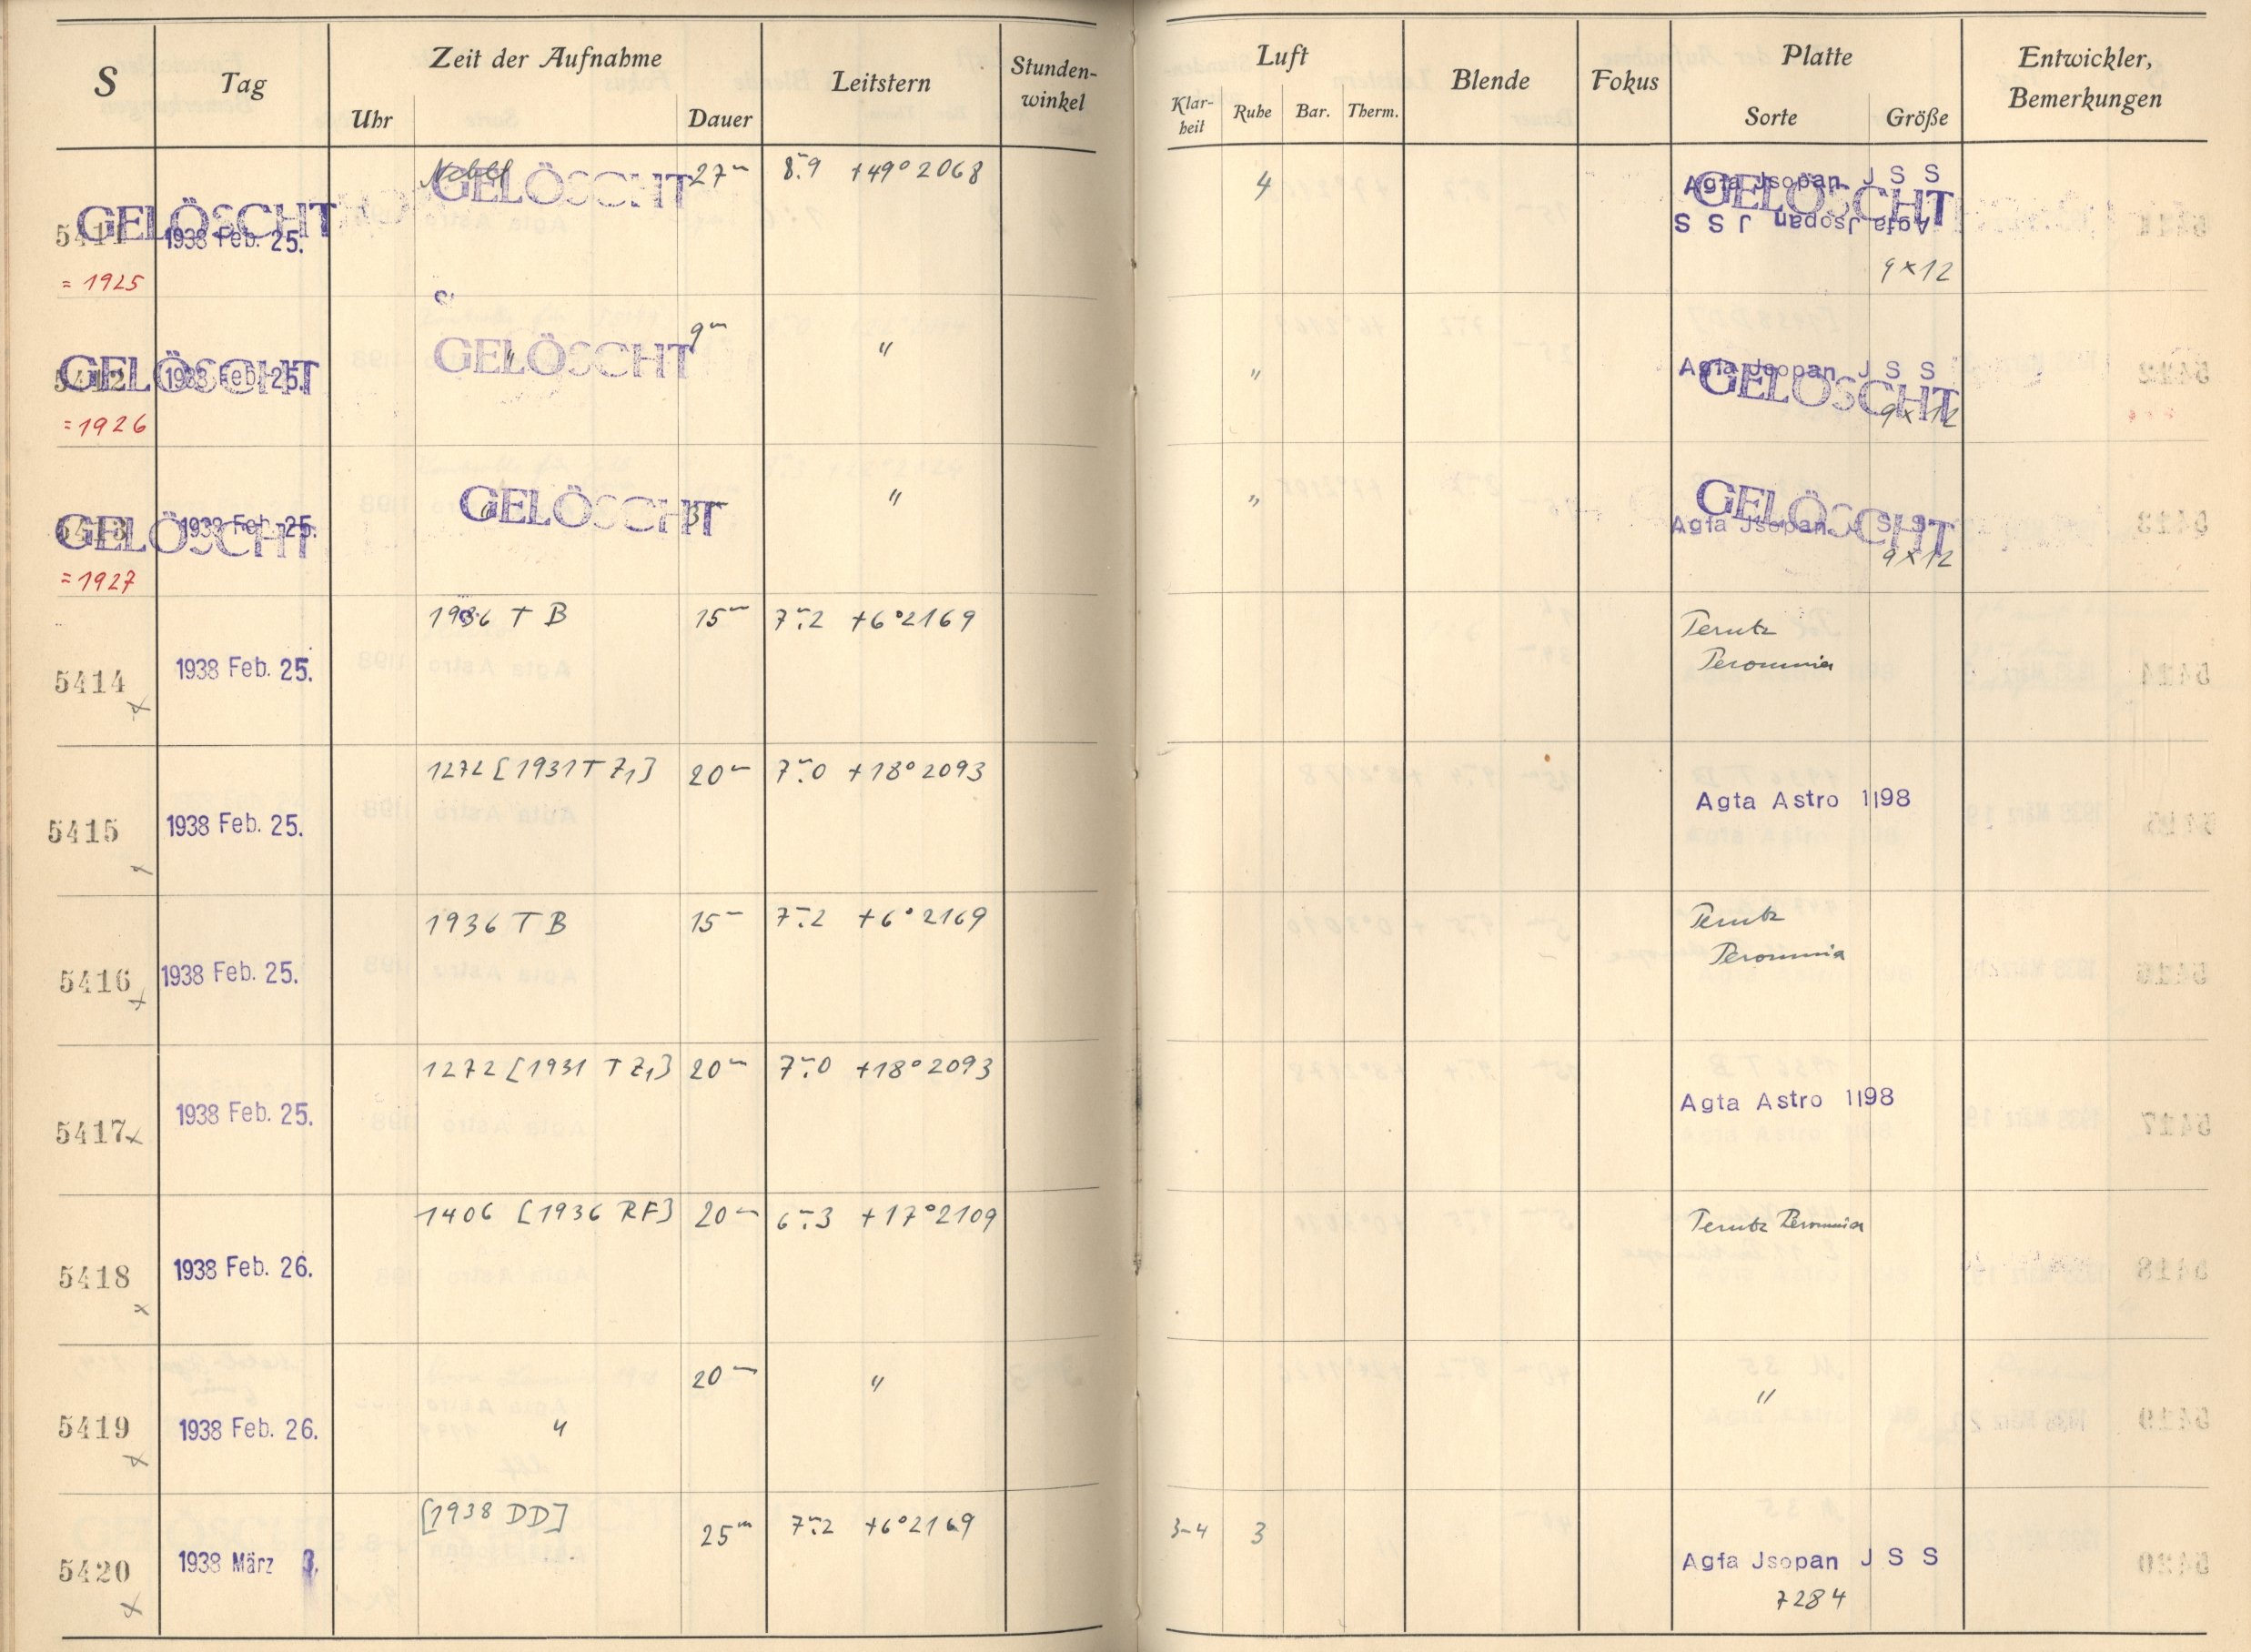 S Tag Zeit der Aufnahme Leitstern Stunden-winkel Luft Blende Fokus Platte Entwickler, Bemerkungen
Uhr Dauer Klar-heit Ruhe Bar. Therm. Sorte Größe
GELÖSCHT 27ᵐ 8ᵐ.9 +49° 2068 4 Agfa Jsopan J S S
GELÖSCHT 1938 Feb. 25. GELÖSCHT
Agfa Jsopan J S S
= 1925 9×12
GELÖSCHT 9ᵐ " " Agfa Jsopan J S S
GELÖSCHT 1938 Feb. 25. " GELÖSCHT
= 1926 9×12
GELÖSCHT " " GELÖSCHT
GELÖSCHT 1938 Feb. 25. Agfa Jsopan J S S
= 1927 9×12
1936 T B 15ᵐ 7ᵐ.2 +6° 2169 Perutz
5414 1938 Feb. 25. Peromnia
1272 [1931 T Z₁] 20ᵐ 7ᵐ.0 +18° 2093
5415 1938 Feb. 25. Agfa Astro 1198
1936 T B 15ᵐ 7ᵐ.2 +6° 2169 Perutz
5416 1938 Feb. 25. Peromnia
1272 [1931 T Z₁] 20ᵐ 7ᵐ.0 +18° 2093
5417 1938 Feb. 25. Agfa Astro 1198
1406 [1936 RF] 20ᵐ 6ᵐ.3 +17° 2109 Perutz Peromnia
5418 1938 Feb. 26.
20ᵐ " "
5419 1938 Feb. 26. "
[1938 DD] 25ᵐ 7ᵐ.2 +6° 2169 3-4 3
5420 1938 März 3. Agfa Jsopan J S S
7284